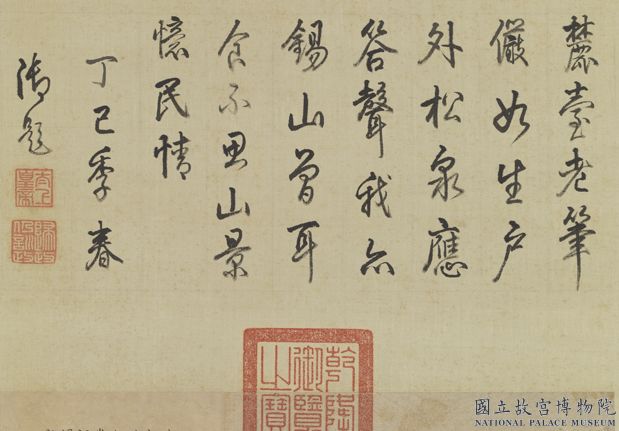 麓臺老筆
儼如生戶
外松泉應
答聲我亦
錫山曾耳
食不思山景
懷民情
丁巳季春
御題
太上皇帝
乾隆御覽之寶
國立故宮博物院
NATIONAL PALACE MUSEUM